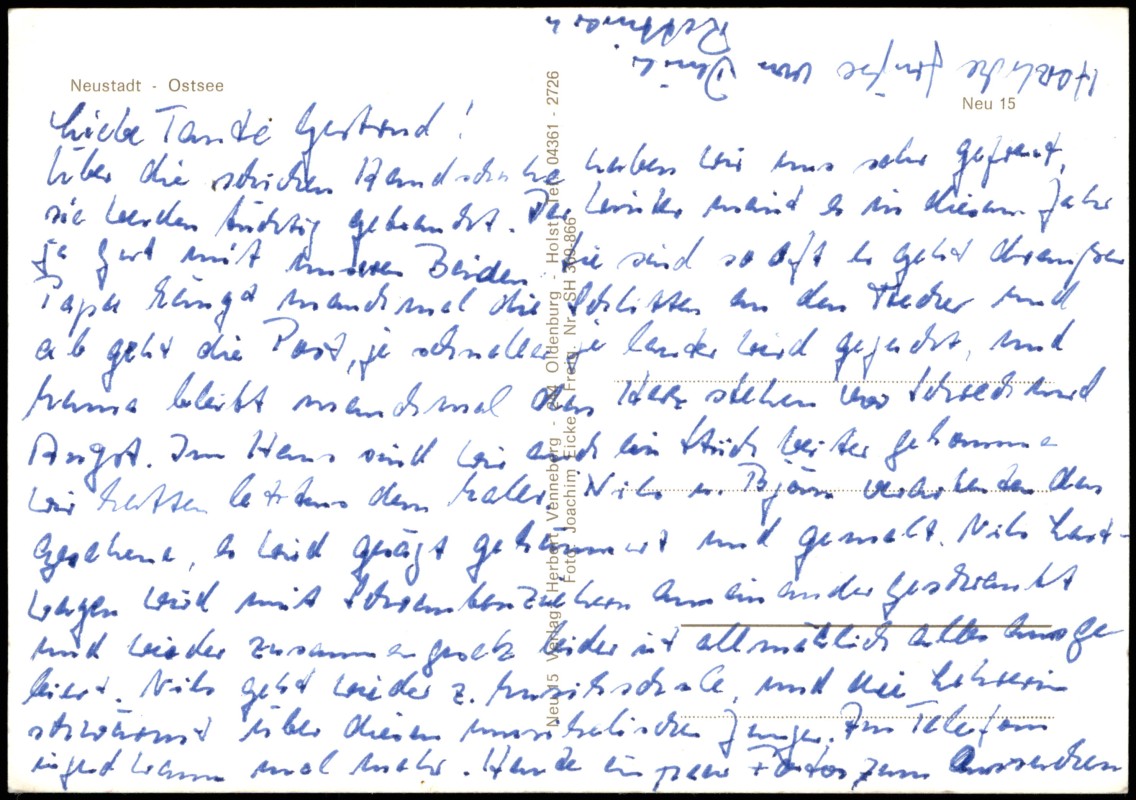 Neustadt - Ostsee
Neu 15
Liebe Tante Gertrud!
Über die schicken Handschuhe haben wir uns sehr gefreut,
sie werden tüchtig gebraucht. Der Winter meint es in diesem Jahr
ja gut mit unseren Beiden. Sie sind so oft es geht draußen
Papa hängt manchmal die Schlitten an den Trecker und
ab geht die Post, je schneller je lauter wird gejucht, und
Mama bleibt manchmal das Herz stehen vor Schreck und
Angst. Im Haus sind wir auch ein Stück weiter gekommen
wir hatten letztens den Maler. Nils u. Björn verarbeiten das
Gesehene, es wird gesägt gehämmert und gemalt. Nils Last-
wagen wird mit Schraubenziehern auseinandergeschraubt
und wieder zusammengesetzt leider ist allmählich alles ausge
leiert. Nils geht wieder z. Musikschule, und die Lehrerin
schwärmt über diesen musikalischen Jungen. Am Telefon
irgendwann mal mehr. Heute ein paar Fotos zum Aussuchen
Herzliche Grüße von
Neu 15 Verlag Herbert Venneburg - 244 Oldenburg - Holst. Tel. 04361 - 2726
Foto: Joachim Eicke Freig. Nr. SH 360-866